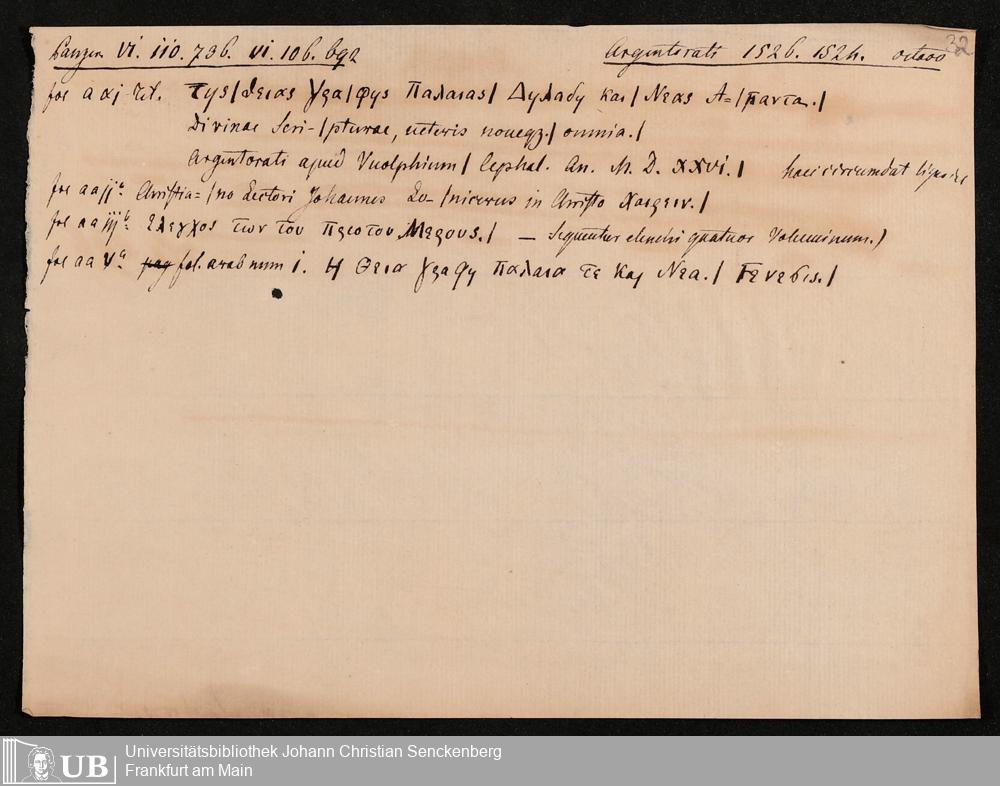 Panzer VI. 110. 736. VI. 106. 692 Argentorati 1526. 1524. octavo 32
fol a aj tit. Της / θειας γρα/φης Παλαιας / Δηλαδη και / Νεας Α= / παντα. /
Divinae Scri- / pturae, veteris noueqz. / omnia. /
Argentorati apud Vuolphium / Cephal. An. M. D. XXVI. / haec circumdat
fol aa ij a. Christia= / no Lectori Johannes Lo- / nicerus in Christo χαιρειν. /
fol aa iij b. Ελεγχος των του πρωτου Μερους. / — Sequuntur elenchi quatuor Voluminum. /
fol aa V a fol. arab num 1. Η Θεια γραφη Παλαια τε και Νεα. / Γενεσις. /
UB Universitätsbibliothek Johann Christian Senckenberg
Frankfurt am Main